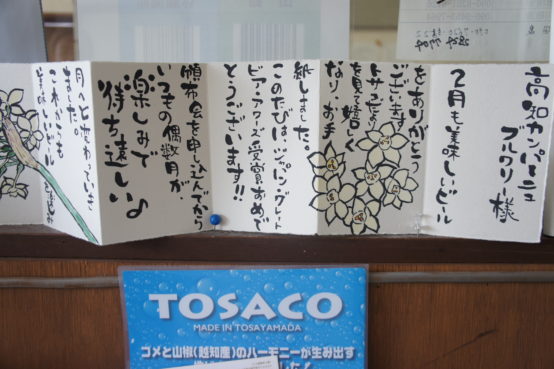 高知カンパーニュ
ブルワリー様
2月も美味しいビール
をありがとう
ございます
トサコだより
を見て嬉しく
なり、お手
紙しました。
このたびは、ジャパン・グレート
ビア・アワーズ受賞おめで
とうございます!!
頒布会を申し込んでから
いつもの偶数月が、
楽しみで
待ち遠しい♪
月へと変わっていき
ました。
これからも
美味しいビール
TOSACO
MADE IN TOSAYAMADA
コメと山椒(越知産)のハーモニーが生み出す